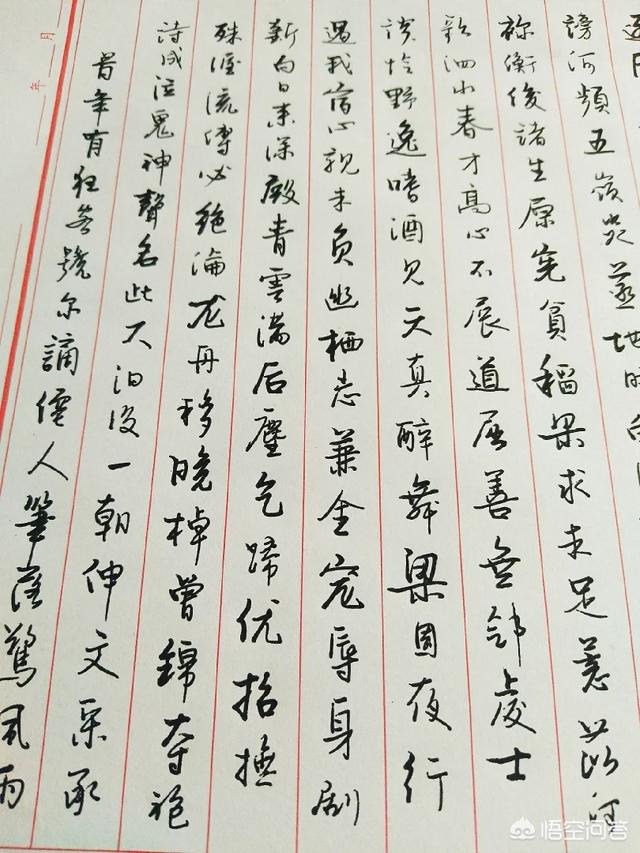 昔年有狂客號尔謫僊人筆落驚風雨
詩成泣鬼神聲名此大汩没一朝伸文采承
殊渥流傳必絕淪龙舟移晚棹曾錦夺袍
新白日来深殿青雲满后塵乞蹄优招撫
遇我宿心親未負幽栖志兼全宠辱身劇
談怜野逸嗜酒見天真醉舞梁园夜行
歌泗水春才高心不展道屈善無邻處士
祢衡俊諸生原宪貧稻梁求未足薏苡
謗河頻五嶺炎蒸地
年 月
悟空问答